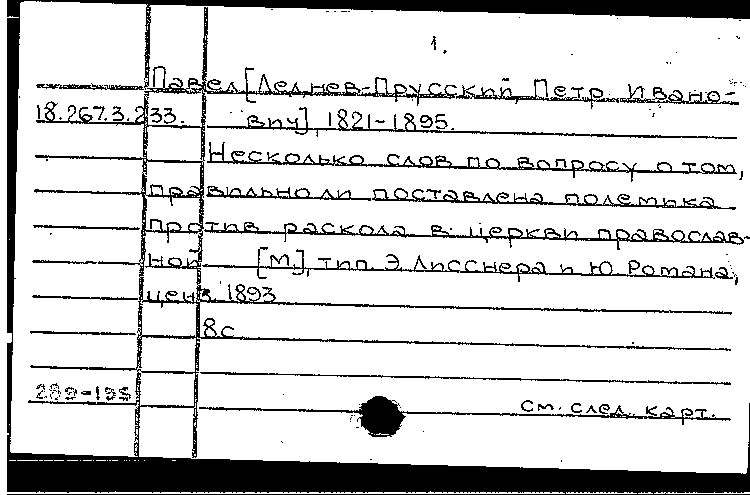 1.
Павел [Леднев-Прусский, Петр Ивано-
18.267.3.233. вич], 1821-1895.
Несколько слов по вопросу о том,
правильно ли поставлена полемика
против раскола в церкви православ-
ной [М.], тип. Э. Лисснера и Ю. Романа,
ценз. 1893
8с
289-135
См. след. карт.